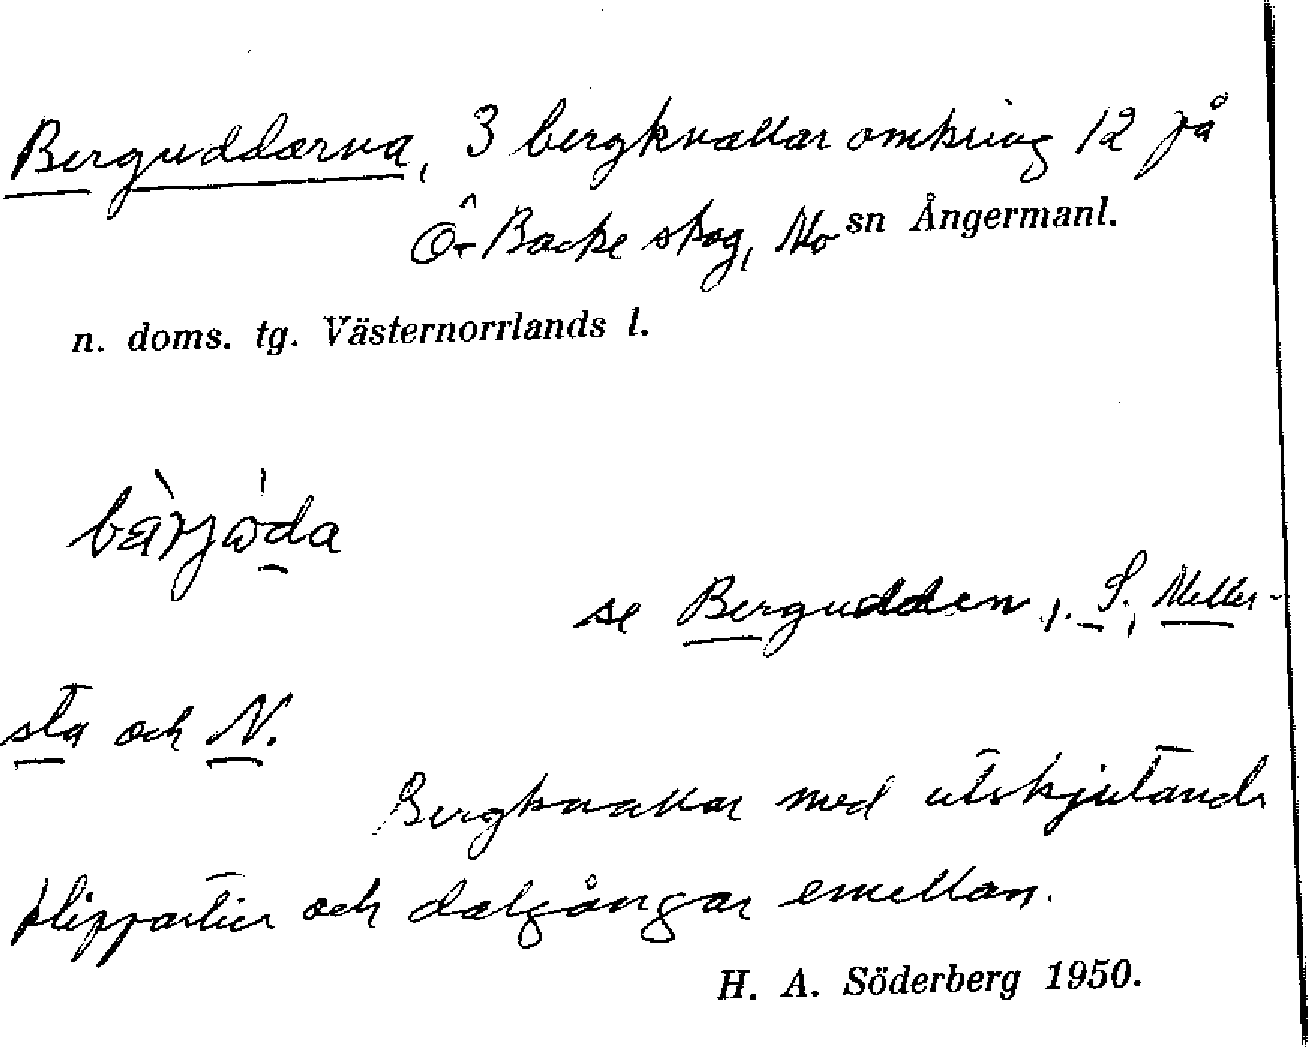 Berguddarna, 3 bergknallar omkring 12 på
Ö Backe skog, Mo sn Ångermanl.
n. doms. tg. Västernorrlands l.
bàrjɷ̀da
se Bergudden, S., Meller-
sta och N.
Bergknallar med utskjutande
klippartier och dalgångar emellan.
H. A. Söderberg 1950.